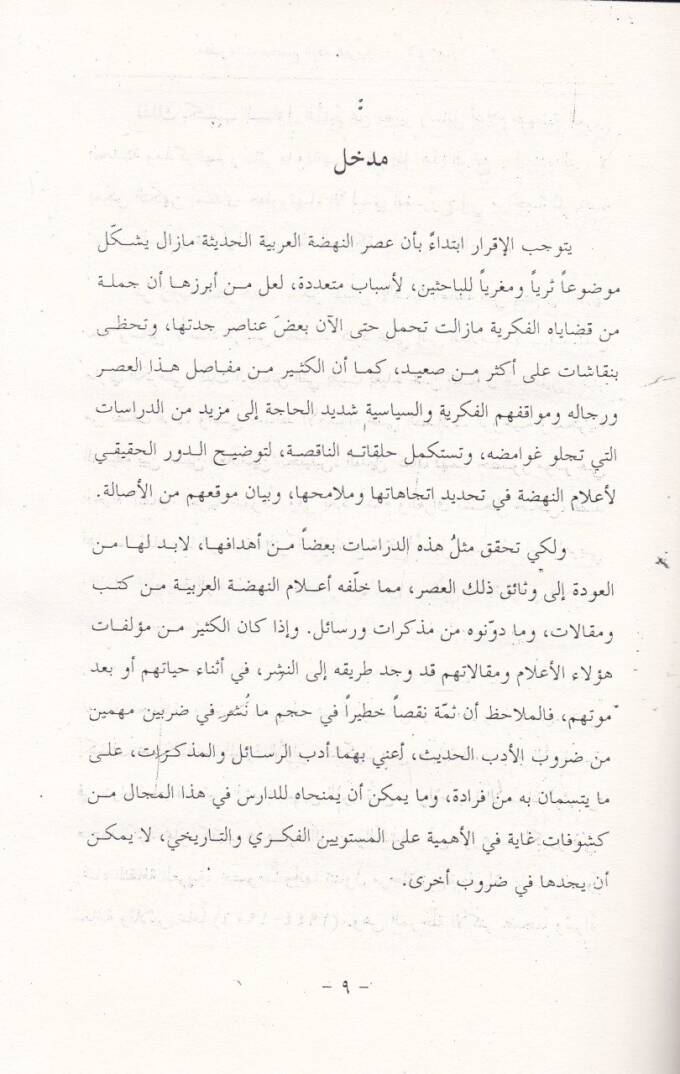 مدخل
يتوجب الإقرار ابتداءً بأن عصر النهضة العربية الحديثة مازال يشكّل
موضوعاً ثرياً ومغرياً للباحثين، لأسباب متعددة، لعل من أبرزها أن جملة
من قضاياه الفكرية مازالت تحمل حتى الآن بعضَ عناصر جدتها، وتحظى
بنقاشات على أكثر من صعيد، كما أن الكثير من مفاصل هذا العصر
ورجاله ومواقفهم الفكرية والسياسية شديد الحاجة إلى مزيد من الدراسات
التي تجلو غوامضه، وتستكمل حلقاته الناقصة، لتوضيح الدور الحقيقي
لأعلام النهضة في تحديد اتجاهاتها وملامحها، وبيان موقعهم من الأصالة.
ولكي تحقق مثلُ هذه الدراسات بعضاً من أهدافها، لابد لها من
العودة إلى وثائق ذلك العصر، مما خلّفه أعلام النهضة العربية من كتب
ومقالات، وما دوّنوه من مذكرات ورسائل. وإذا كان الكثير من مؤلفات
هؤلاء الأعلام ومقالاتهم قد وجد طريقه إلى النشر، في أثناء حياتهم أو بعد
موتهم، فالملاحظ أن ثمّة نقصاً خطيراً في حجم ما نُشر في ضربين مهمين
من ضروب الأدب الحديث، أعني بهما أدب الرسائل والمذكرات، على
ما يتسمان به من فرادة، وما يمكن أن يمنحاه للدارس في هذا المجال من
كشوفات غاية في الأهمية على المستويين الفكري والتاريخي، لا يمكن
أن يجدها في ضروب أخرى.
- ٩ -